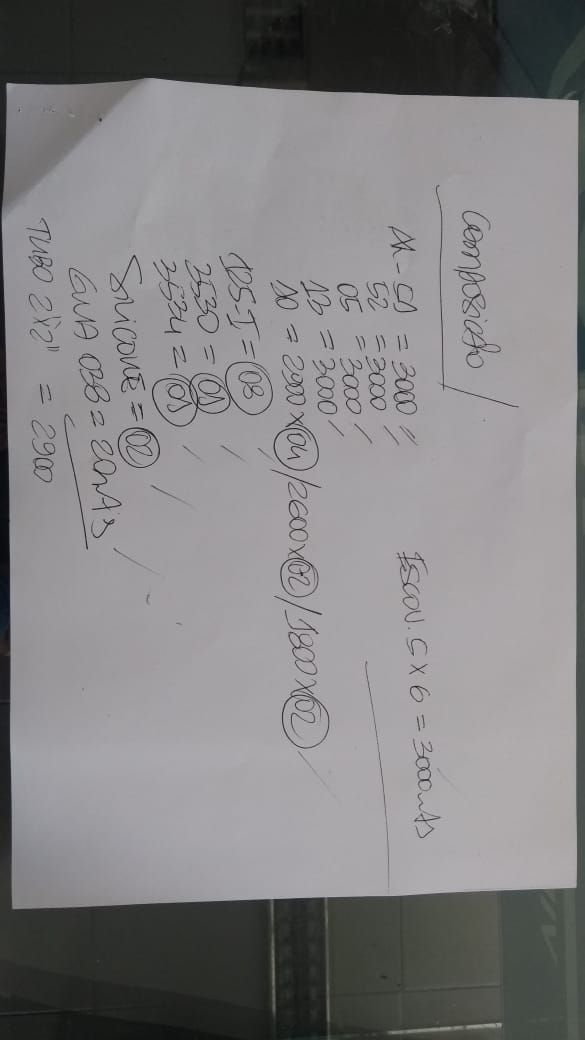 Composição
Al - 51 = 3000
52 = 3000
05 = 3000
13 = 3000
10 = 2900 x 04 / 2600 x 02 / 1800 x 02
125-I = 03
2530 = 01
2574 = 01
SiliCONE = 02
GUIA 028 = 20mts
TUBO 2 1/2" = 2900
ESCOV. 5 x 6 = 3000mts